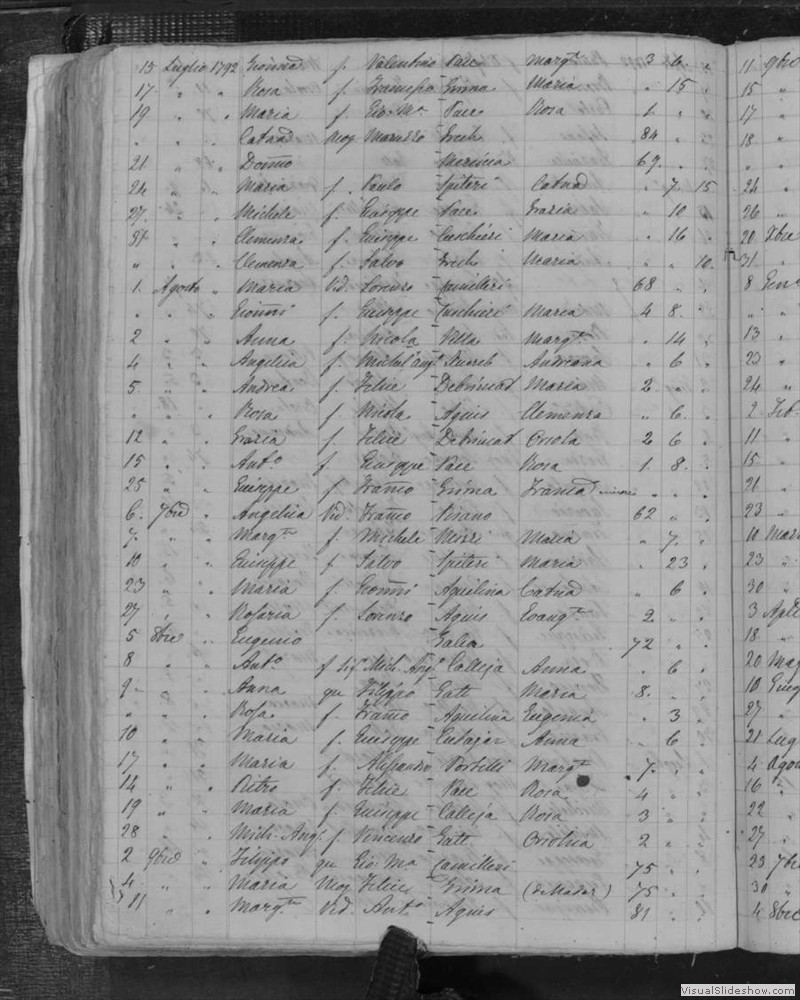 15 Luglio 1792 Gionnã f. Valentino Pace Margta 3 6 "
17 " " Rosa f. Francesco Grima Maria " 15 "
19 " " Maria f. Gio. Ma Pace Rosa 1 " "
" " " Catnã Mog Maruzzo Grech 84 " "
21 " " Domco 69 " "
24 " " Maria f. Paulo Spiteri Catnã " 7 15
27 " " Michele f. Giuseppe Pace Grazia " 10 "
" " Clemenza f. Giuseppe Cuschieri Maria " 16 "
" " " Clemenza f. Salvo Grech Maria " " 10
1 Agosto " Maria Vid. Lorenzo Camilleri 68 " "
" " " Gionni f. Giuseppe Cuschieri Maria 4 8 "
2 " " Anna f. Nicola Vella Margta " 14 "
4 " " Angelica f. Michel'ang. Xuereb Andreana " 6 "
5 " " Andrea f. Felice Debrincat Maria 2 " "
" " " Rosa f. Nicola Agius Clemenza " 6 "
12 " " Grazia f. Felice Debrincat Orsola 2 6 "
15 " " Anto f. Giuseppe Pace Rosa 1 8 "
25 " " Giuseppe f. Franco Grima Francã " " "
6 7bre " Angelica Vid. Franco Pisano 62 " "
7 " " Margta f. Michele Maria " 7 "
10 " " Giuseppe f. Salvo Spiteri Maria " 23 "
23 " " Maria f. Gionni Aquilina Catnã " 6 "
27 " " Rosaria f. Lorenzo Agius Evangta 2 " "
5 8bre " Eugenio Galea 72 " "
8 " " Anto f. Mich. Ang. Calleja Anna " 6 "
9 " " Anna qu Filippo Gatt Maria 8 " "
" " " Rosa f. Franco Aquilina Eugenia " 3 "
10 " " Maria f. Giuseppe Cutajar Anna " 6 "
17 " " Maria f. Alesandro Portelli Margta 7 " "
14 " " Pietro f. Felice Pace Rosa 4 " "
19 " " Maria f. Giuseppe Calleja Rosa 3 " "
28 " " Mich. Ang. f. Vincenzo Gatt Orsolica 2 " "
2 9bre " Filippo qu Gio. Ma Camilleri 75 " "
4 " " Maria Mog Felice Grima 75 " "
11 " " Margta Vid. Anto Agius 81 " "
11 9bre
15 "
17 "
18 "
" "
24 "
26 "
20 Xbre
31 "
8 Gen
" "
13 "
23 "
24 "
2 Feb
11 "
15 "
21 "
23 "
10 Mar
23 "
30 "
3 Aple
18 "
20 Mag
10 Giug
27 "
21 Lug
4 Agos
16 "
22 "
27 "
23 7bre
30 "
4 8bre
VisualSlideshow.com